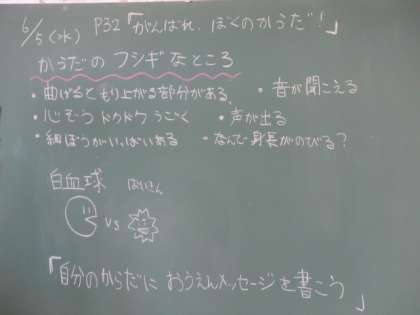 6/5(水) P32「がんばれ、ぼくのからだ!」
からだのフシギなところ
・曲げるともり上がる部分がある、 ・音が聞こえる
・心ぞうドクドクうごく ・声が出る
・細ぼうがいっぱいある ・なんで身長がのびる?
白血球 ばいきん
VS
「自分のからだに おうえんメッセージを書こう」